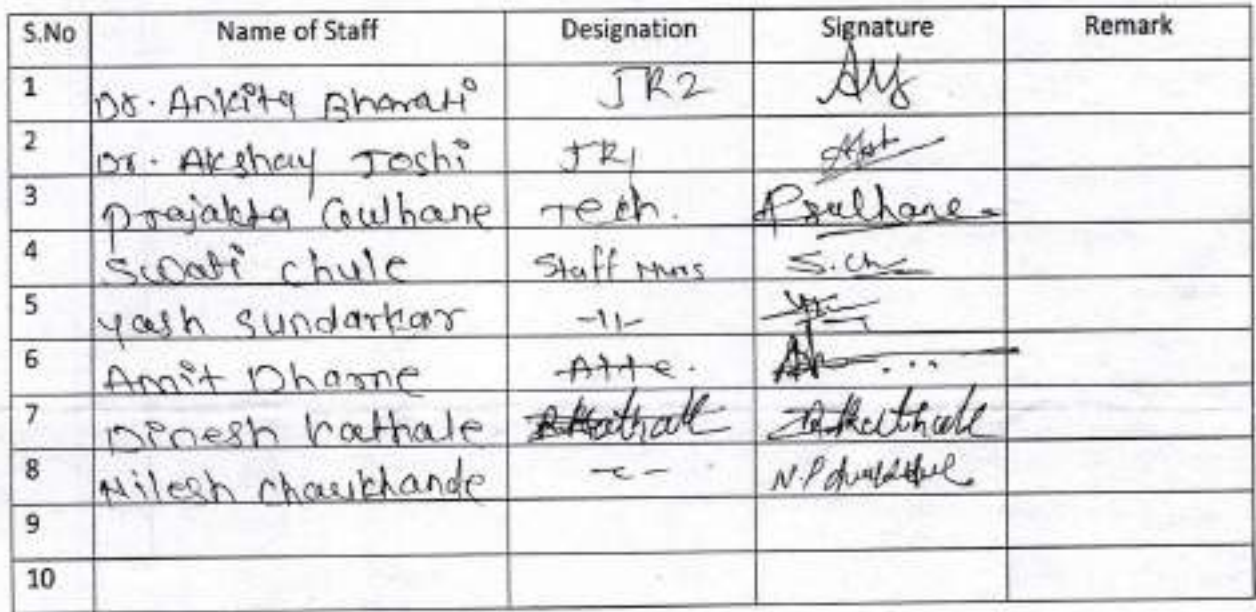 S.No Name of Staff Designation Signature Remark
1 Dr. Ankita Bharati JR2
2 Dr. Akshay Joshi JR1
3 Prajakta Gulhane Tech. Pgulhane
4 Swati chule Staff Nurs S.Ch
5 Yash Sundarkar -11-
6 Amit Dharme Atte.
7 Dinesh Kathale Dkathale Dkathale
8 Nilesh Chaukhande
9
10